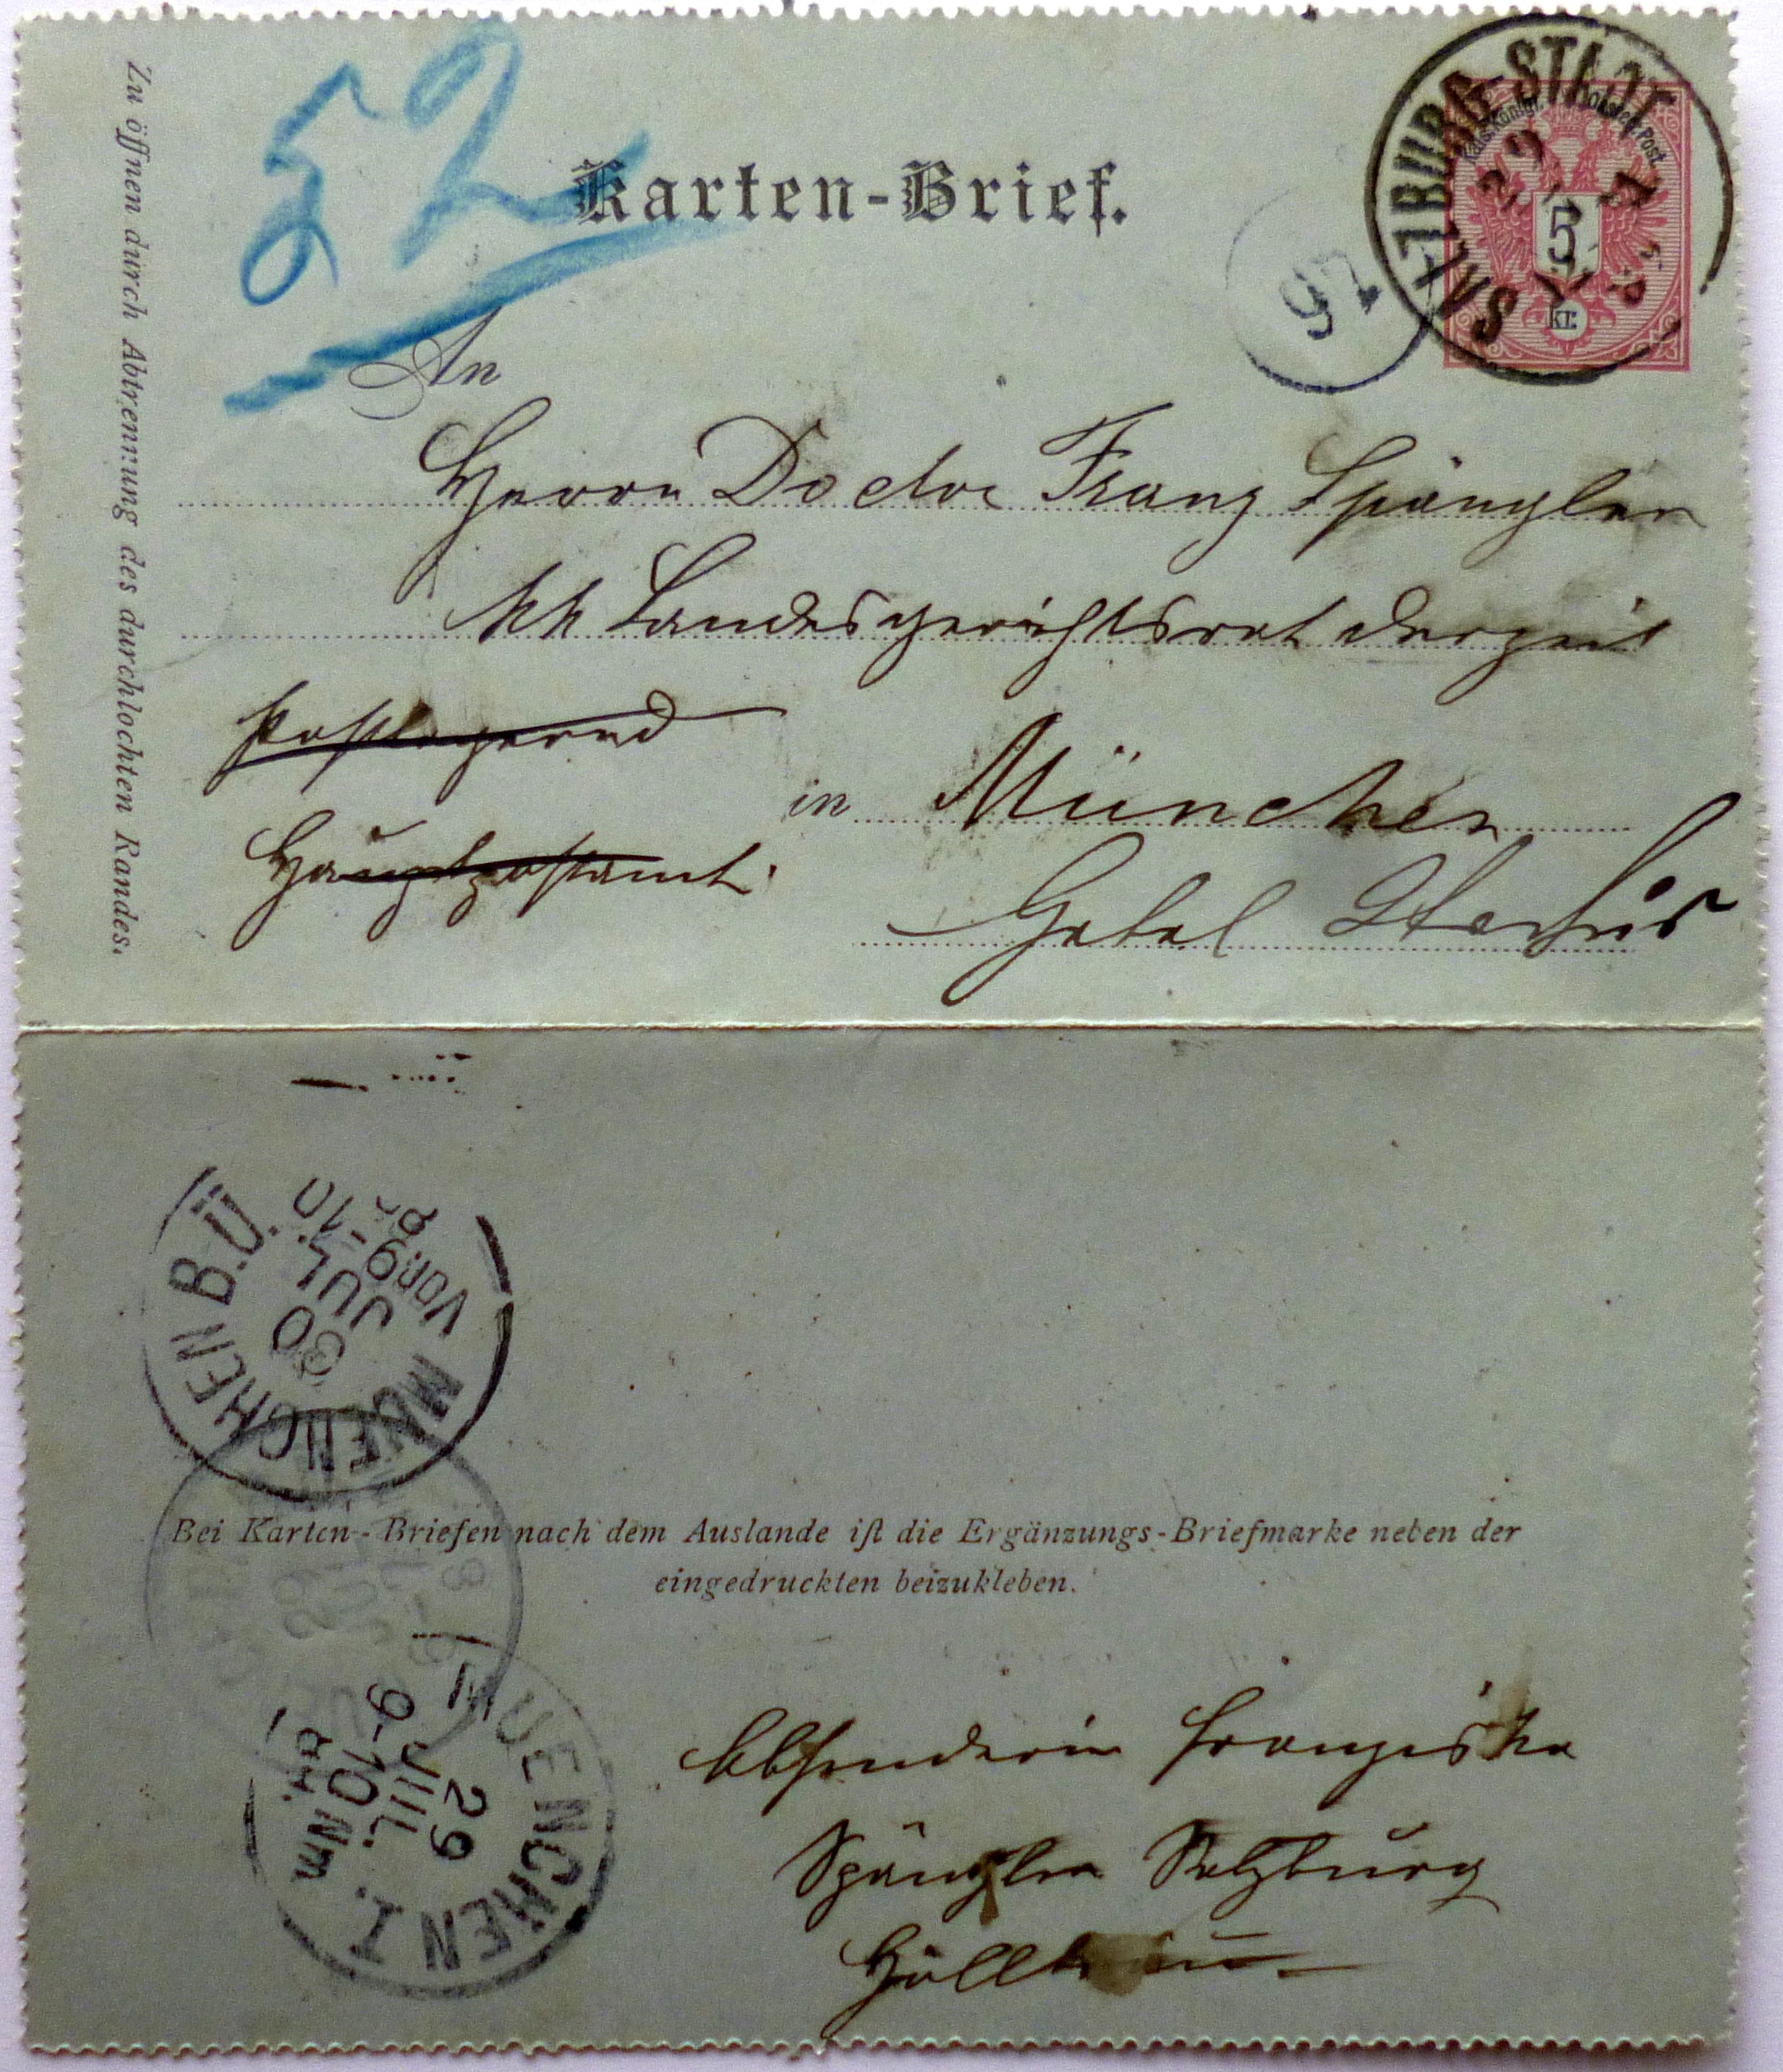 52
Karten-Brief.
SALZBURG-STADT
29
5
kr.
97
Zu öffnen durch Abtrennung des durchlochten Randes.
An
Herrn Doctor Franz Spängler
kk Landesgerichtsrat derzeit
postlagernd
Hauptpostamt.
in München
Hotel Stachus
MUENCHEN B.Ü.
30
JUL
9-10
Vorm
Bei Karten-Briefen nach dem Auslande ist die Ergänzungs-Briefmarke neben der
eingedruckten beizukleben.
MUENCHEN I.
29
JUL.
9-10 Nm.
Absenderin Franziska
Spängler Salzburg